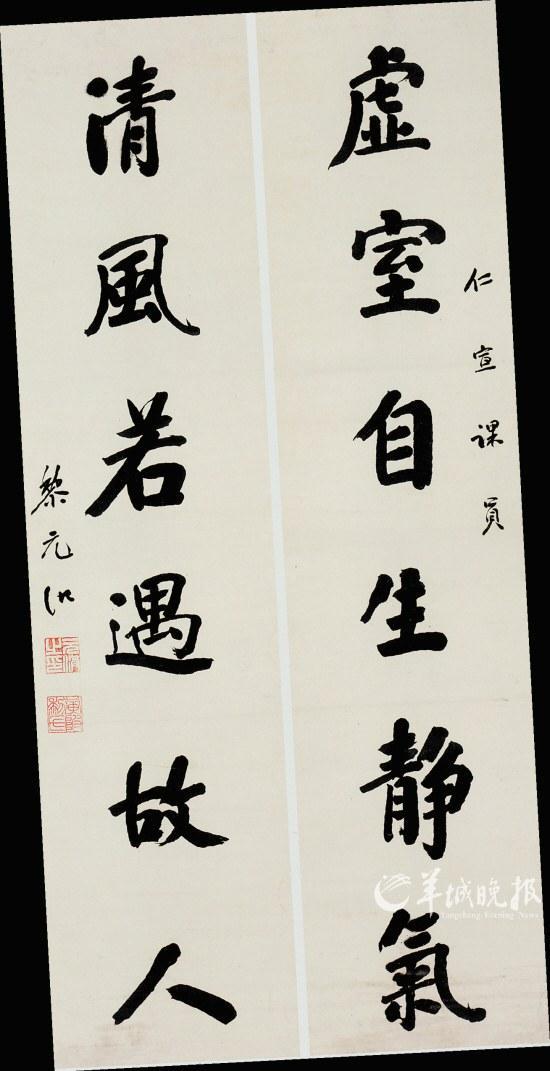 仁宣課員
虛室自生靜氣
清風若遇故人
黎元洪
羊城晚报
Yangcheng Evening News